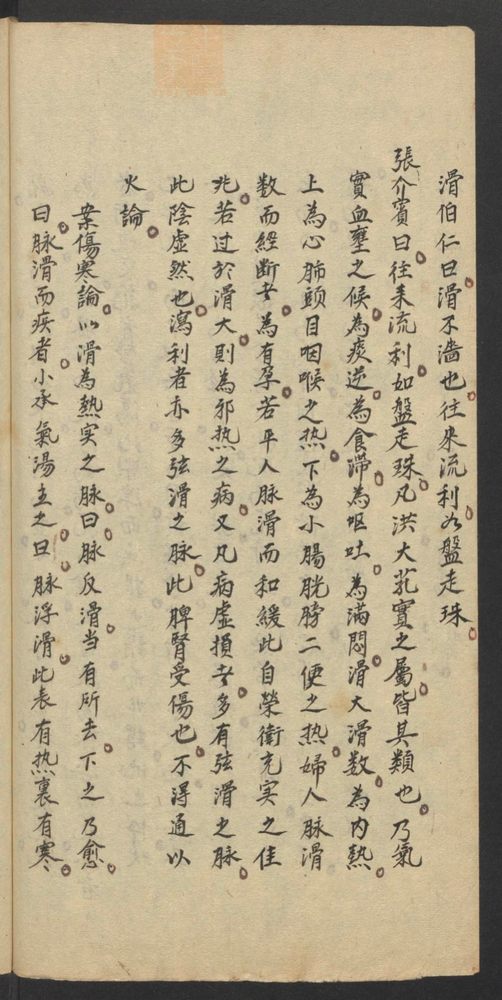 滑伯仁曰滑不濇也往來流利如盤走珠
張介賓曰往来流利如盤走珠凡洪大芤實之屬皆其類也乃氣
實血壅之候為痰逆為食滯為嘔吐為滿悶滑大滑数為内熱
上為心肺頭目咽喉之热下為小腸胱膀二便之热婦人脉滑
数而經断者為有孕若平人脉滑而和緩此自榮衛充实之佳
兆若过於滑大則為邪热之病又凡病虚損者多有弦滑之脉
此陰虚然也瀉利者亦多弦滑之脉此脾腎受傷也不淂通以
火論
案傷寒論以滑為熱实之脉曰脉反滑当有所去下之乃愈
曰脉滑而疾者小承氣湯主之曰脉浮滑此表有热裏有寒